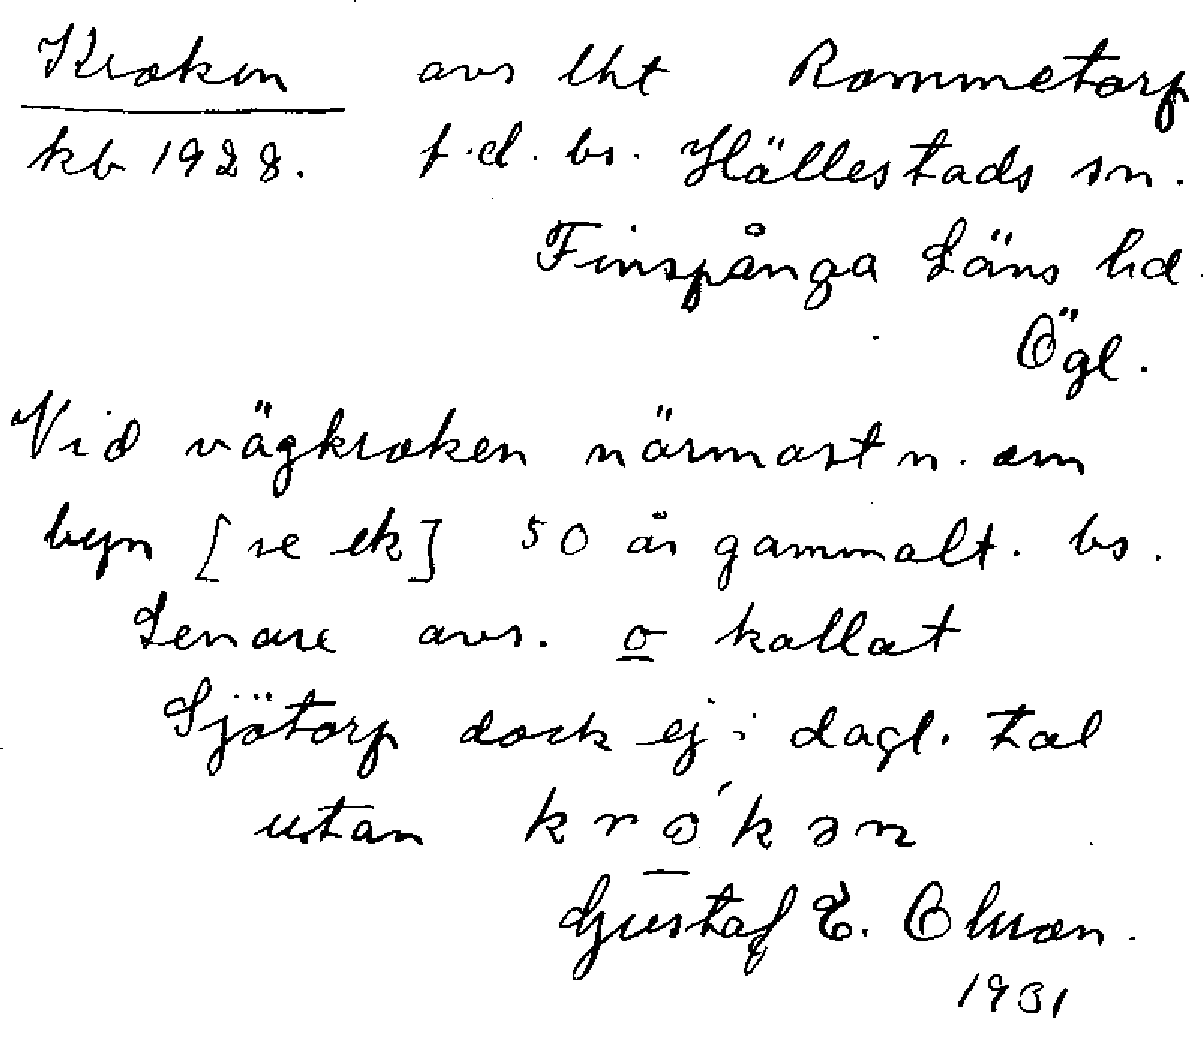 Kroken avs lht Rommetorp
kb 1928. f.d. bs. Hällestads sn.
Finspånga Läns hd.
Ögl.
Vid vägkroken närmast n. om
byn [se ek] 50 år gammalt. bs.
Senare avs. o kallat
Sjötorp dock ej i dagl. tal
utan krókən
Gustaf E. Olsson.
1931